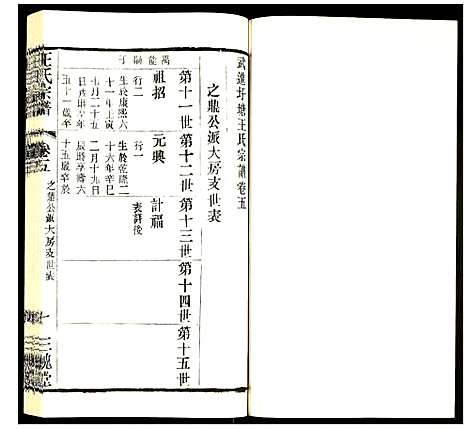 武進圩塘王氏宗譜卷五
之鼎公派大房支世表
第十一世 第十二世 第十三世 第十四世 第十五世
萬能嗣子
祖招 元興 計福
行二 行一 表詳後
生於康熙六 生於乾隆二
十一年壬寅 十六年辛巳
十月二十五 二月十九日
日辰時享年 辰時享壽六
五十一歲卒 十五歲卒於
王氏宗譜 卷之五 之鼎公派大房支世表 十 三槐堂